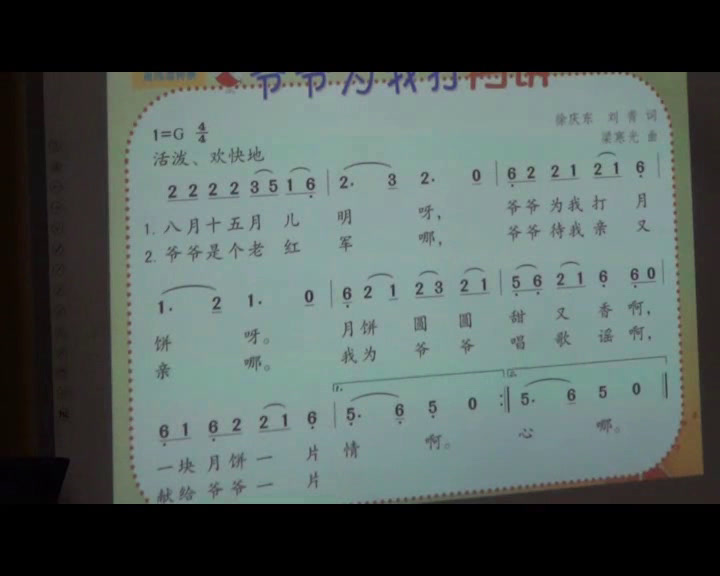 爷爷为我打月饼
徐庆东 刘青 词
1=G 4/4
梁寒光 曲
活泼、欢快地
2 2 2 2 3 5 1 6 | 2. 3 2. 0 | 6 2 2 1 2 1 6
1. 八月十五月儿 明 呀, 爷爷为我打月
2. 爷爷是个老红 军 哪, 爷爷待我亲又
1. 2 1. 0 | 6 2 1 2 3 2 1 | 5 6 2 1 6 6 0
饼 呀。 月饼 圆 圆 甜 又 香 啊,
亲 哪。 我为 爷 爷 唱 歌 谣 啊,
1. 2.
6 1 6 2 2 1 6 | 5. 6 5 0 :‖ 5. 6 5 0 ‖
一块月饼一 片 情 啊。 心 哪。
献给爷爷一 片